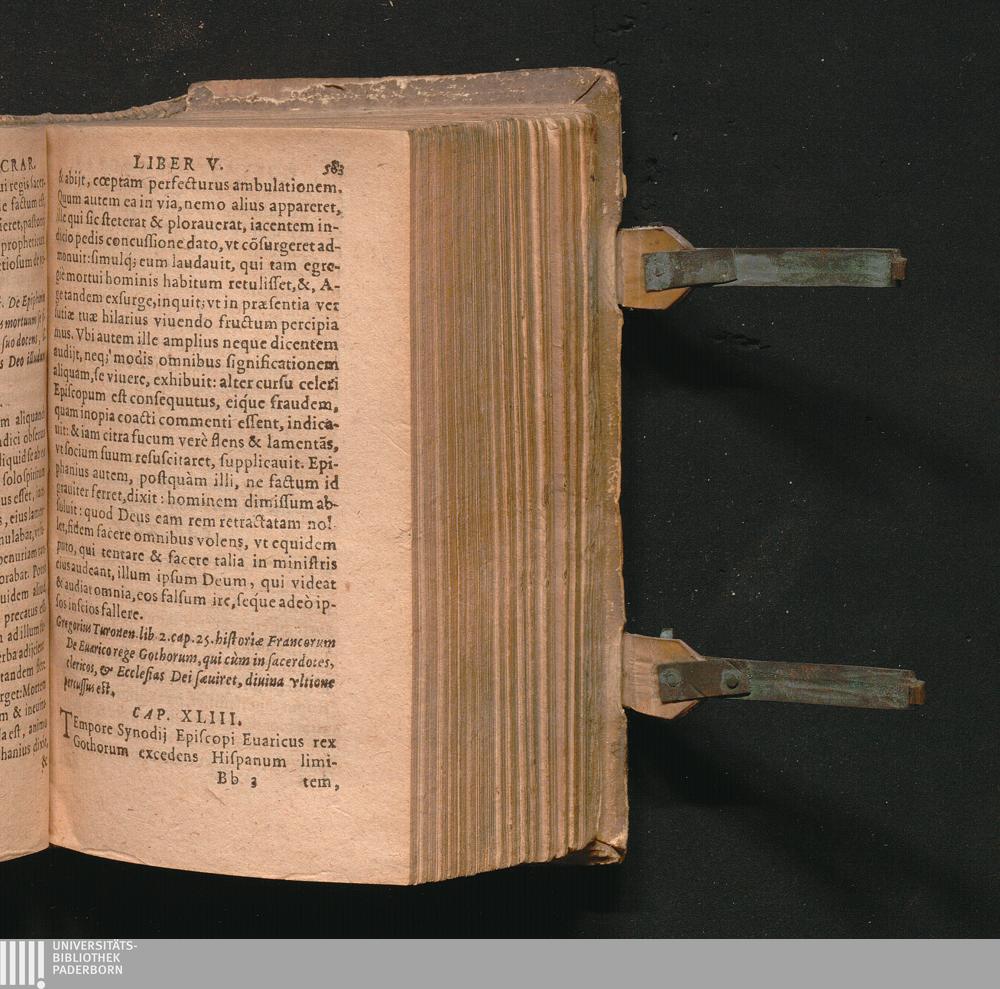 CRAR.
LIBER V. 583
& abijt, cœptam perfecturus ambulationem.
Quum autem ea in via, nemo alius appareret,
ille qui sic steterat & plorauerat, iacentem in-
dicio pedis concussione dato, vt cõsurgeret ad-
monuit: simulq; eum laudauit, qui tam egre-
giè mortui hominis habitum retulisset, &, A-
ge tandem exsurge, inquit; vt in præsentia ver
sutiæ tuæ hilarius viuendo fructum percipia
mus. Vbi autem ille amplius neque dicentem
audijt, neq; modis omnibus significationem
aliquam, se viuere, exhibuit: alter cursu celeri
Episcopum est consequutus, eique fraudem,
quam inopia coacti commenti essent, indica-
uit: & iam citra fucum verè flens & lamentãs,
vt socium suum resuscitaret, supplicauit. Epi-
phanius autem, postquàm illi, ne factum id
grauiter ferret, dixit: hominem dimissum ab-
soluit: quod Deus eam rem retractatam nol
let, fidem facere omnibus volens, vt equidem
puto, qui tentare & facere talia in ministris
eius audeant, illum ipsum Deum, qui videat
& audiat omnia, eos falsum ire, seque adeò ip-
sos inscios fallere.
Gregorius Turonen. lib 2. cap. 25. historiæ Francorum
De Euarico rege Gothorum, qui cùm in sacerdotes,
clericos, & Ecclesias Dei sæuiret, diuina vltione
percussus est.
CAP. XLIII.
TEmpore Synodij Episcopi Euaricus rex
Gothorum excedens Hispanum limi-
Bb 3 tem,
UNIVERSITÄTS-
BIBLIOTHEK
PADERBORN